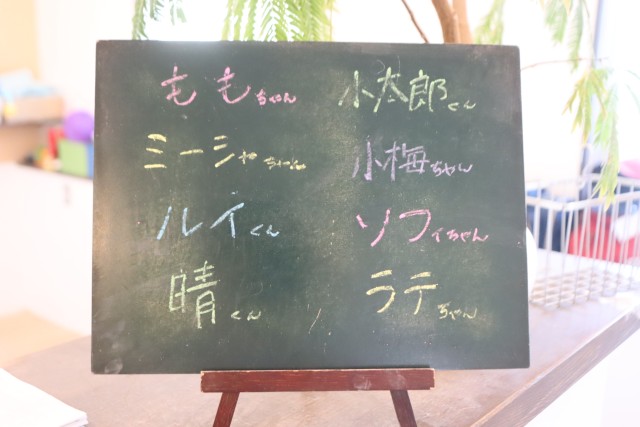 ももちゃん 小太郎くん
ミーシャちゃん 小梅ちゃん
ルイくん ソフィちゃん
晴くん ラテちゃん